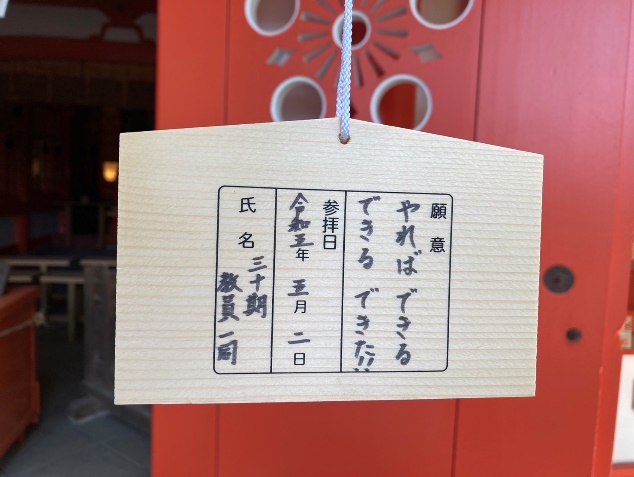 願意
やればできる
できる できた!!
参拝日
令和五年 五月 二日
氏名
三十期
教員一同